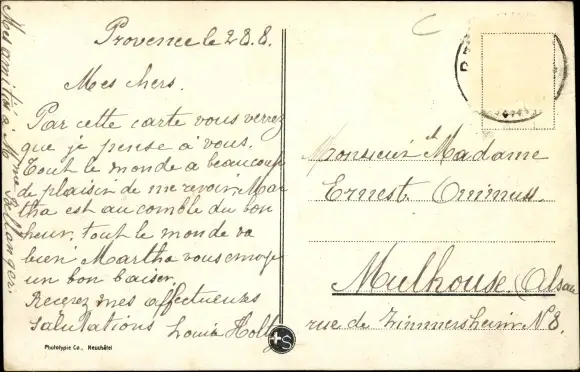 Provence le 28.8.
Mes chers.
Par cette carte vous verrez
que je pense à vous.
Tout le monde a beaucoup
de plaisir de me revoir. Mar
tha est au comble du bon
heur, tout le monde va
bien Martha vous envoye
un bon baiser.
Recevez mes affectueuses
salutations Louis Holly
Mes amitiés à Mme Bollander.
Photolypie Co., Neuchâtel
+S
Monsieur et Madame
Ernest
Mulhouse (Alsace
rue de Zimmersheim N 8.